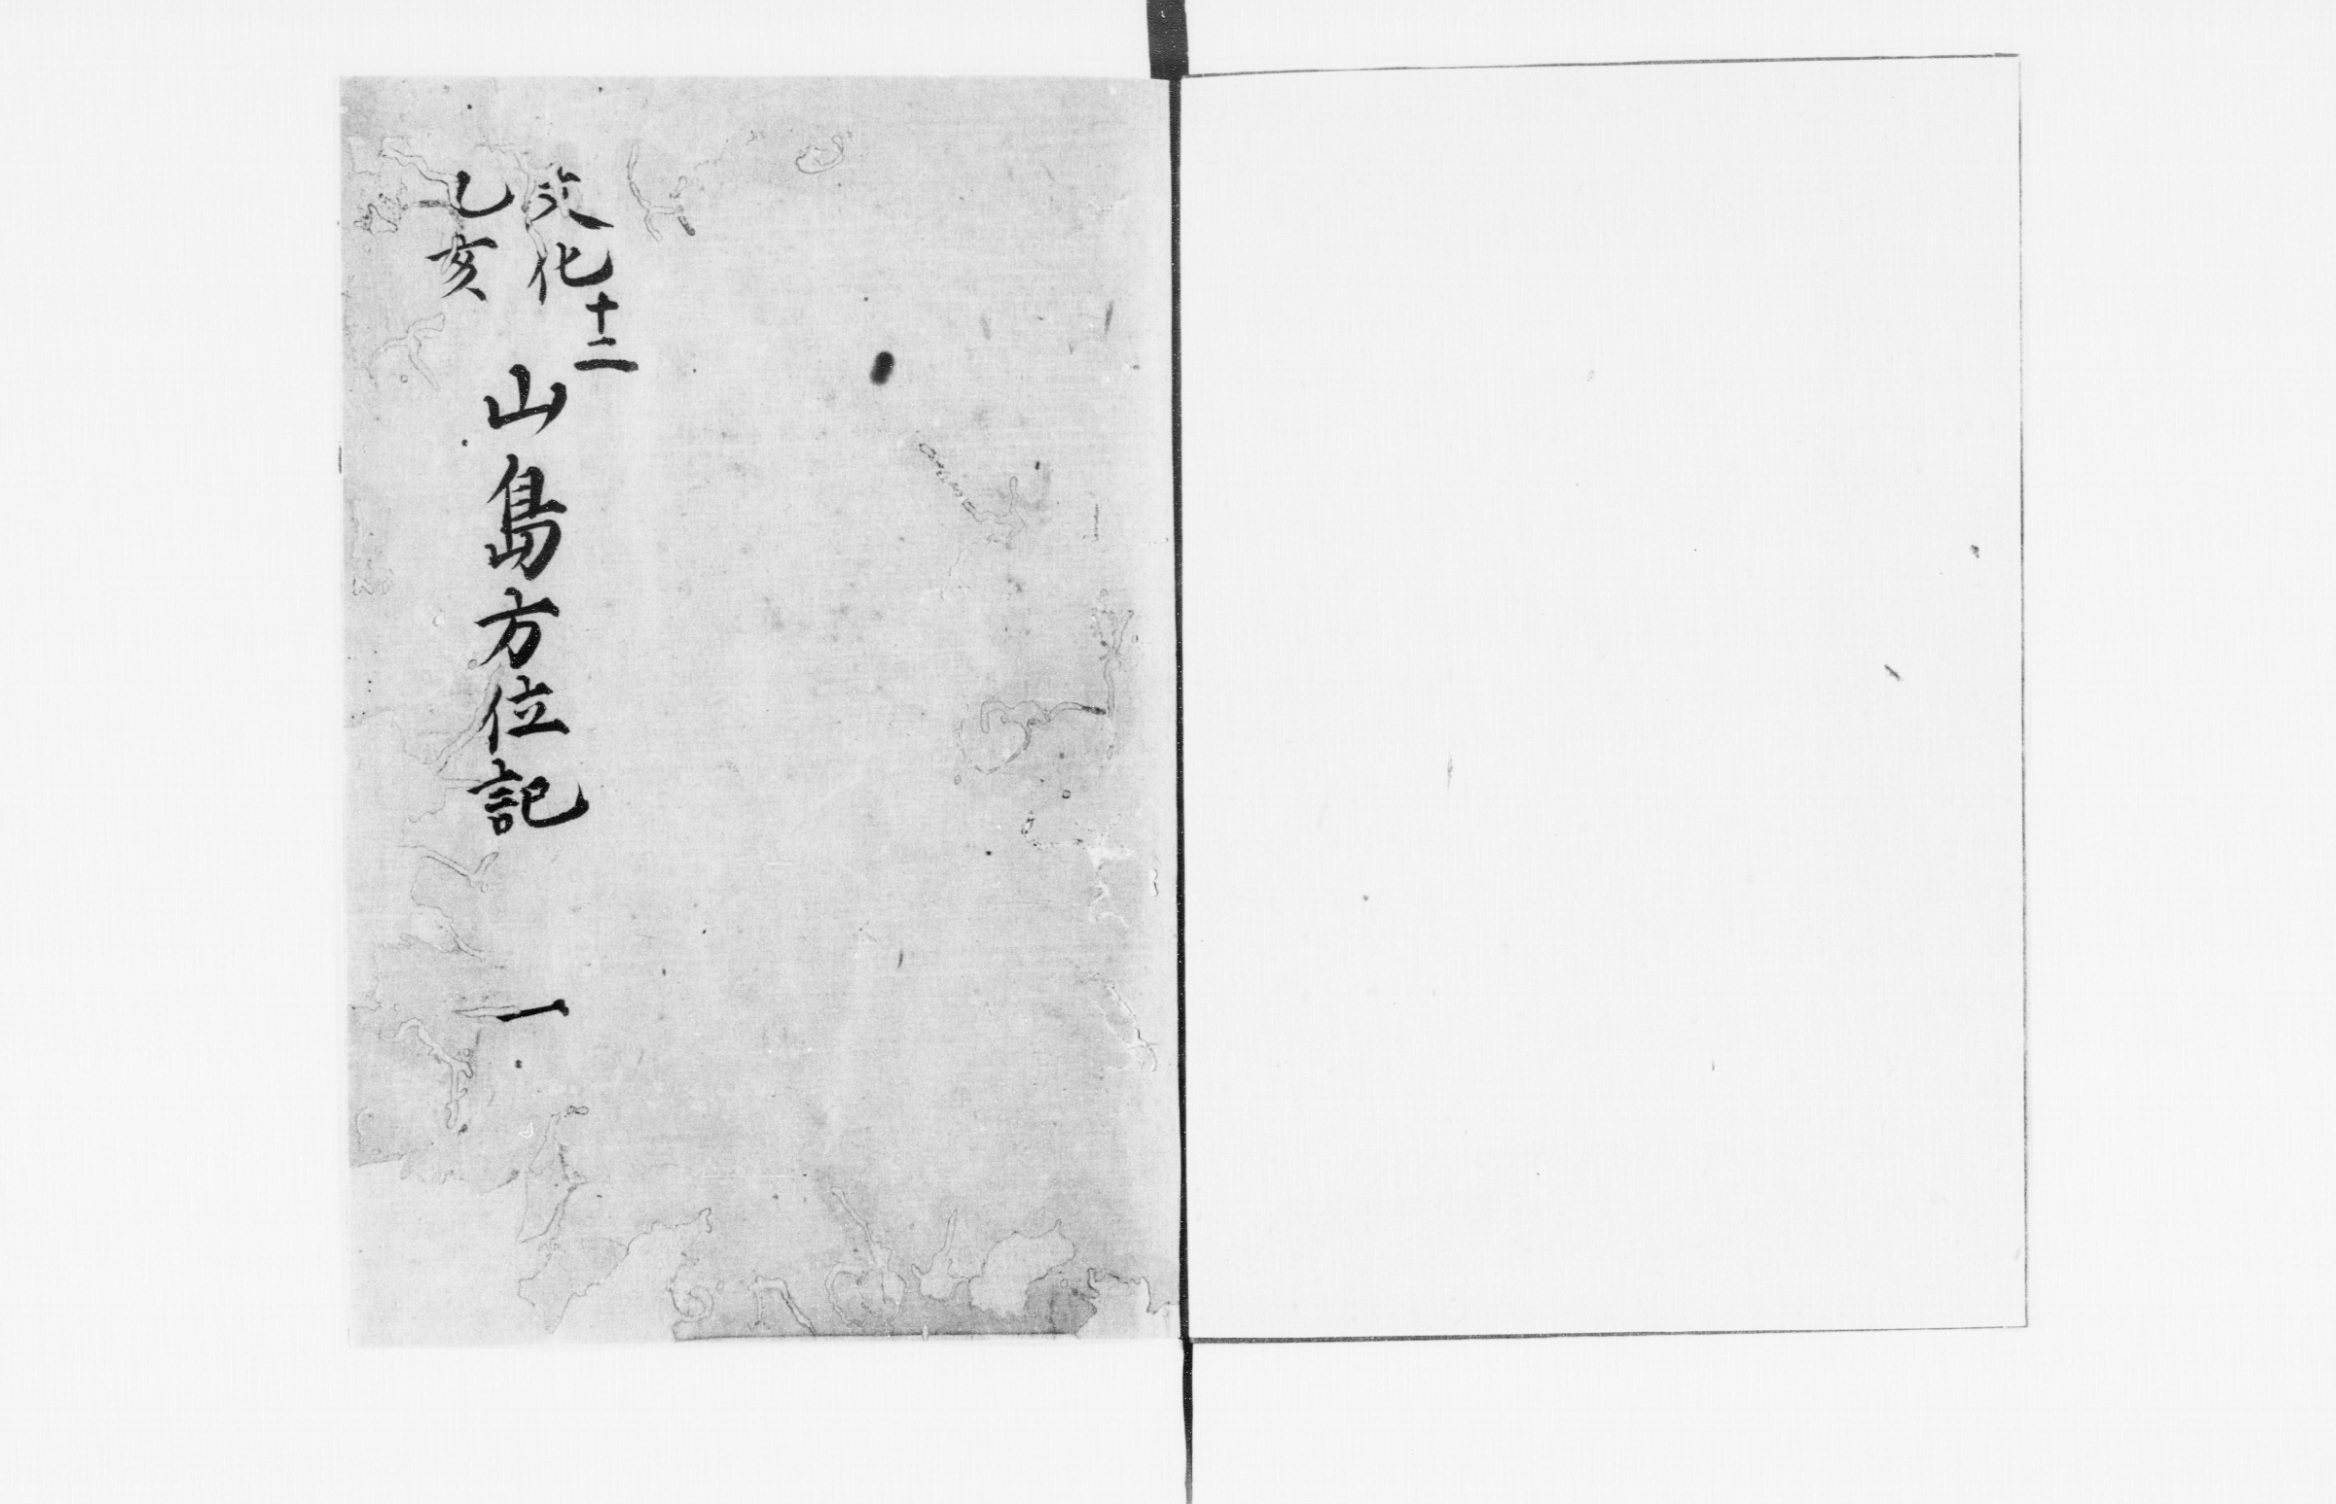 文化十二
乙亥
山島方位記 一